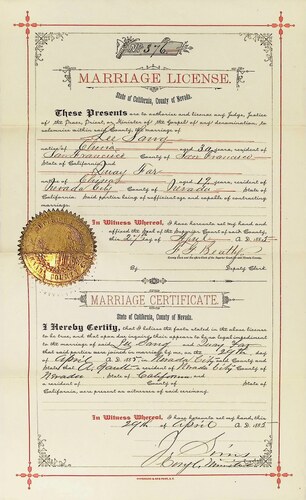 No. 376
MARRIAGE LICENSE.
State of California, County of Nevada.
These Presents are to authorize and license any Judge, Justice
of the Peace, Priest, or Minister of the Gospel of any denomination, to
solemnize within said County, the marriage of
Lee Sang
native of China aged 30 years, resident of
San Francisco County of San Francisco
and Quay Fae
native of China aged 19 years, resident of
Nevada City County of Nevada State of
California. Said parties being of sufficient age and capable of contracting
marriage.
In Witness Whereof, I have hereunto set my hand and
affixed the Seal of the Superior Court of said County,
this 29th day of April A. D. 1885
F. G. Beatty
By Deputy Clerk
MARRIAGE CERTIFICATE.
State of California, County of Nevada.
I Hereby Certify, that I believe the facts stated in the above license
to be true, and that upon due inquiry there appears to be no legal impediment
to the marriage of said Lee Sang and Quay Fae
that said parties were joined in marriage by me, on the 29th day
of April A. D. 1885 in Nevada City Nevada County and
State; that A. Gault a resident of Nevada City County of
Nevada State of California and
a resident of County of State of
California, are present as witnesses of said ceremony.
In Witness Whereof, I have hereunto set my hand, this
29th of April A. D. 1885
J. Sims
Congl. Minister